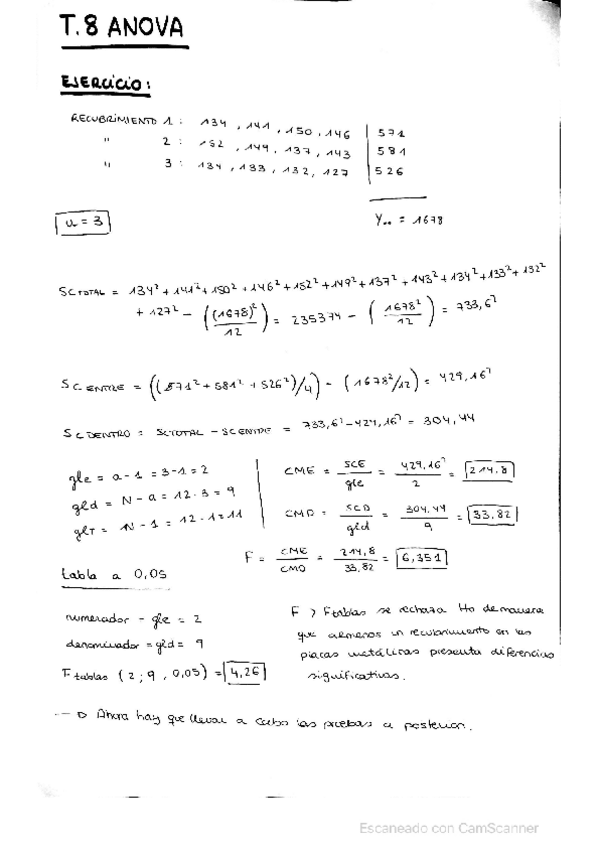 T.8 ANOVA
EJERCICIO:
RECUBRIMIENTO 1 : 134 , 141 , 150 , 146 | 571
" 2 : 152 , 149 , 137 , 143 | 581
" 3 : 134 , 133 , 132 , 127 | 526
a = 3
Y.. = 1678
SC TOTAL = 134² + 141² + 150² + 146² + 152² + 149² + 137² + 143² + 134² + 133² + 132²
+ 127² - ((1678)²/12) = 235374 - (1678²/12) = 733,6̂
SC ENTRE = ((571² + 581² + 526²)/4) - (1678²/12) = 429,16̂
SC DENTRO = SCTOTAL - SCENTRE = 733,6̂ - 429,16̂ = 304,44
gle = a - 1 = 3-1 = 2
gld = N - a = 12 - 3 = 9
glT = N - 1 = 12 - 1 = 11
CME = SCE/gle = 429,16̂/2 = 214.8
CMD = SCD/gld = 304.44/9 = 33.82
F = CME/CMD = 214,8/33,82 = 6,351
tabla a 0,05
numerador - gle = 2
denominador = gld = 9
F tablas (2 ; 9 , 0,05) = 4,26
F > Ftablas se rechaza Ho de manera
que almenos un recubrimiento en las
placas metálicas presenta diferencias
significativas.
Ahora hay que llevar a cabo las pruebas a posteriori.
Escaneado con CamScanner